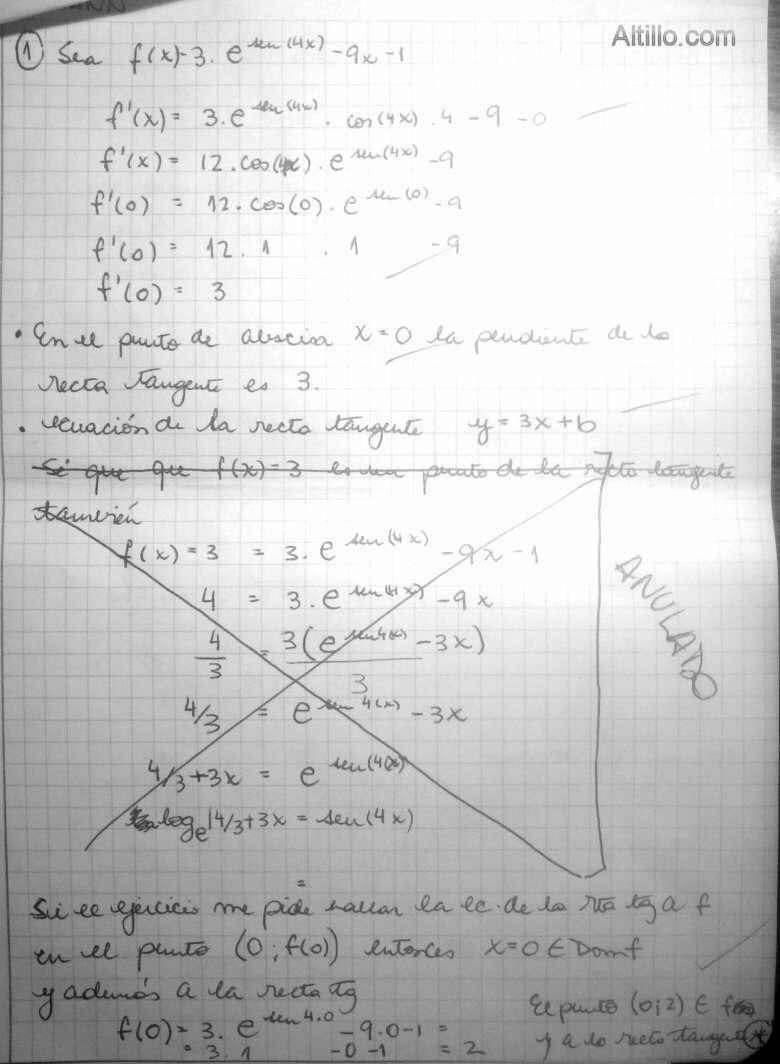 Altillo.com
① Sea f(x)=3.e^sen(4x) -9x-1
f'(x)= 3.e^sen(4x) . cos(4x) .4 -9 -0
f'(x)= 12.cos(4x).e^sen(4x) -9
f'(0) = 12.cos(0).e^sen(0) -9
f'(0)= 12. 1 . 1 -9
f'(0)= 3
• En el punto de abscisa x=0 la pendiente de la
recta tangente es 3.
• ecuación de la recta tangente y=3x+b
Sé que que f(x)=3 es un punto de la recta tangente
también
f(x)=3 = 3.e^sen(4x) -9x-1
4 = 3.e^sen(4x) -9x
4/3 = 3(e^sen4(x) -3x)/3
4/3 = e^sen4(x) -3x
4/3+3x = e^sen(4(x)
log_e |4/3+3x = sen(4x)
ANULADO
=
Si el ejercicio me pide hallar la ec. de la rta tg a f
en el punto (0;f(0)) entonces x=0 ∈ Dom f
y además a la recta tg
f(0)= 3.e^sen4.0 -9.0-1=
= 3.1 -0 -1 = 2
El punto (0;2) ∈
y a la recta tangente *